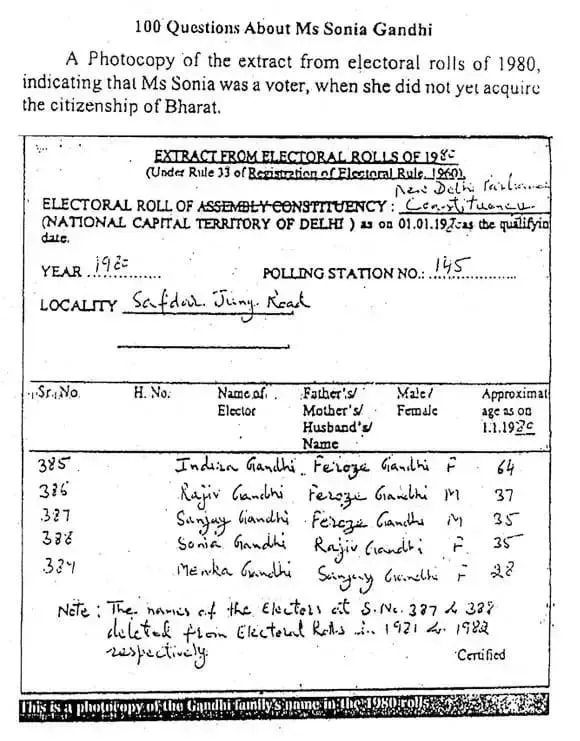 100 Questions About Ms Sonia Gandhi
A Photocopy of the extract from electoral rolls of 1980,
indicating that Ms Sonia was a voter, when she did not yet acquire
the citizenship of Bharat.
EXTRACT FROM ELECTORAL ROLLS OF 1980
(Under Rule 33 of Registration of Electoral Rule, 1960).
New Delhi Parliamen
ELECTORAL ROLL OF ASSEMBLY CONSTITUENCY : Constituency
(NATIONAL CAPITAL TERRITORY OF DELHI ) as on 01.01.19 as the qualifyin
date.
YEAR 1980 POLLING STATION NO.: 145
LOCALITY Safdar Jung Road
Sr. No. H. No. Name of Father's/ Male/ Approximat
Elector Mother's/ Female age as on
Husband's/ 1.1.1980
Name
385 Indira Gandhi Feroze Gandhi F 64
386 Rajiv Gandhi Feroze Gandhi M 37
387 Sanjay Gandhi Feroze Gandhi M 35
388 Sonia Gandhi Rajiv Gandhi F 35
389 Menka Gandhi Sanjay Gandhi F 28
Note : The names of the Electors at S.No. 387 & 388
deleted from Electoral Rolls in 1981 & 1982
respectively.
Certified
This is a photocopy of the Gandhi family's name in the 1980 rolls